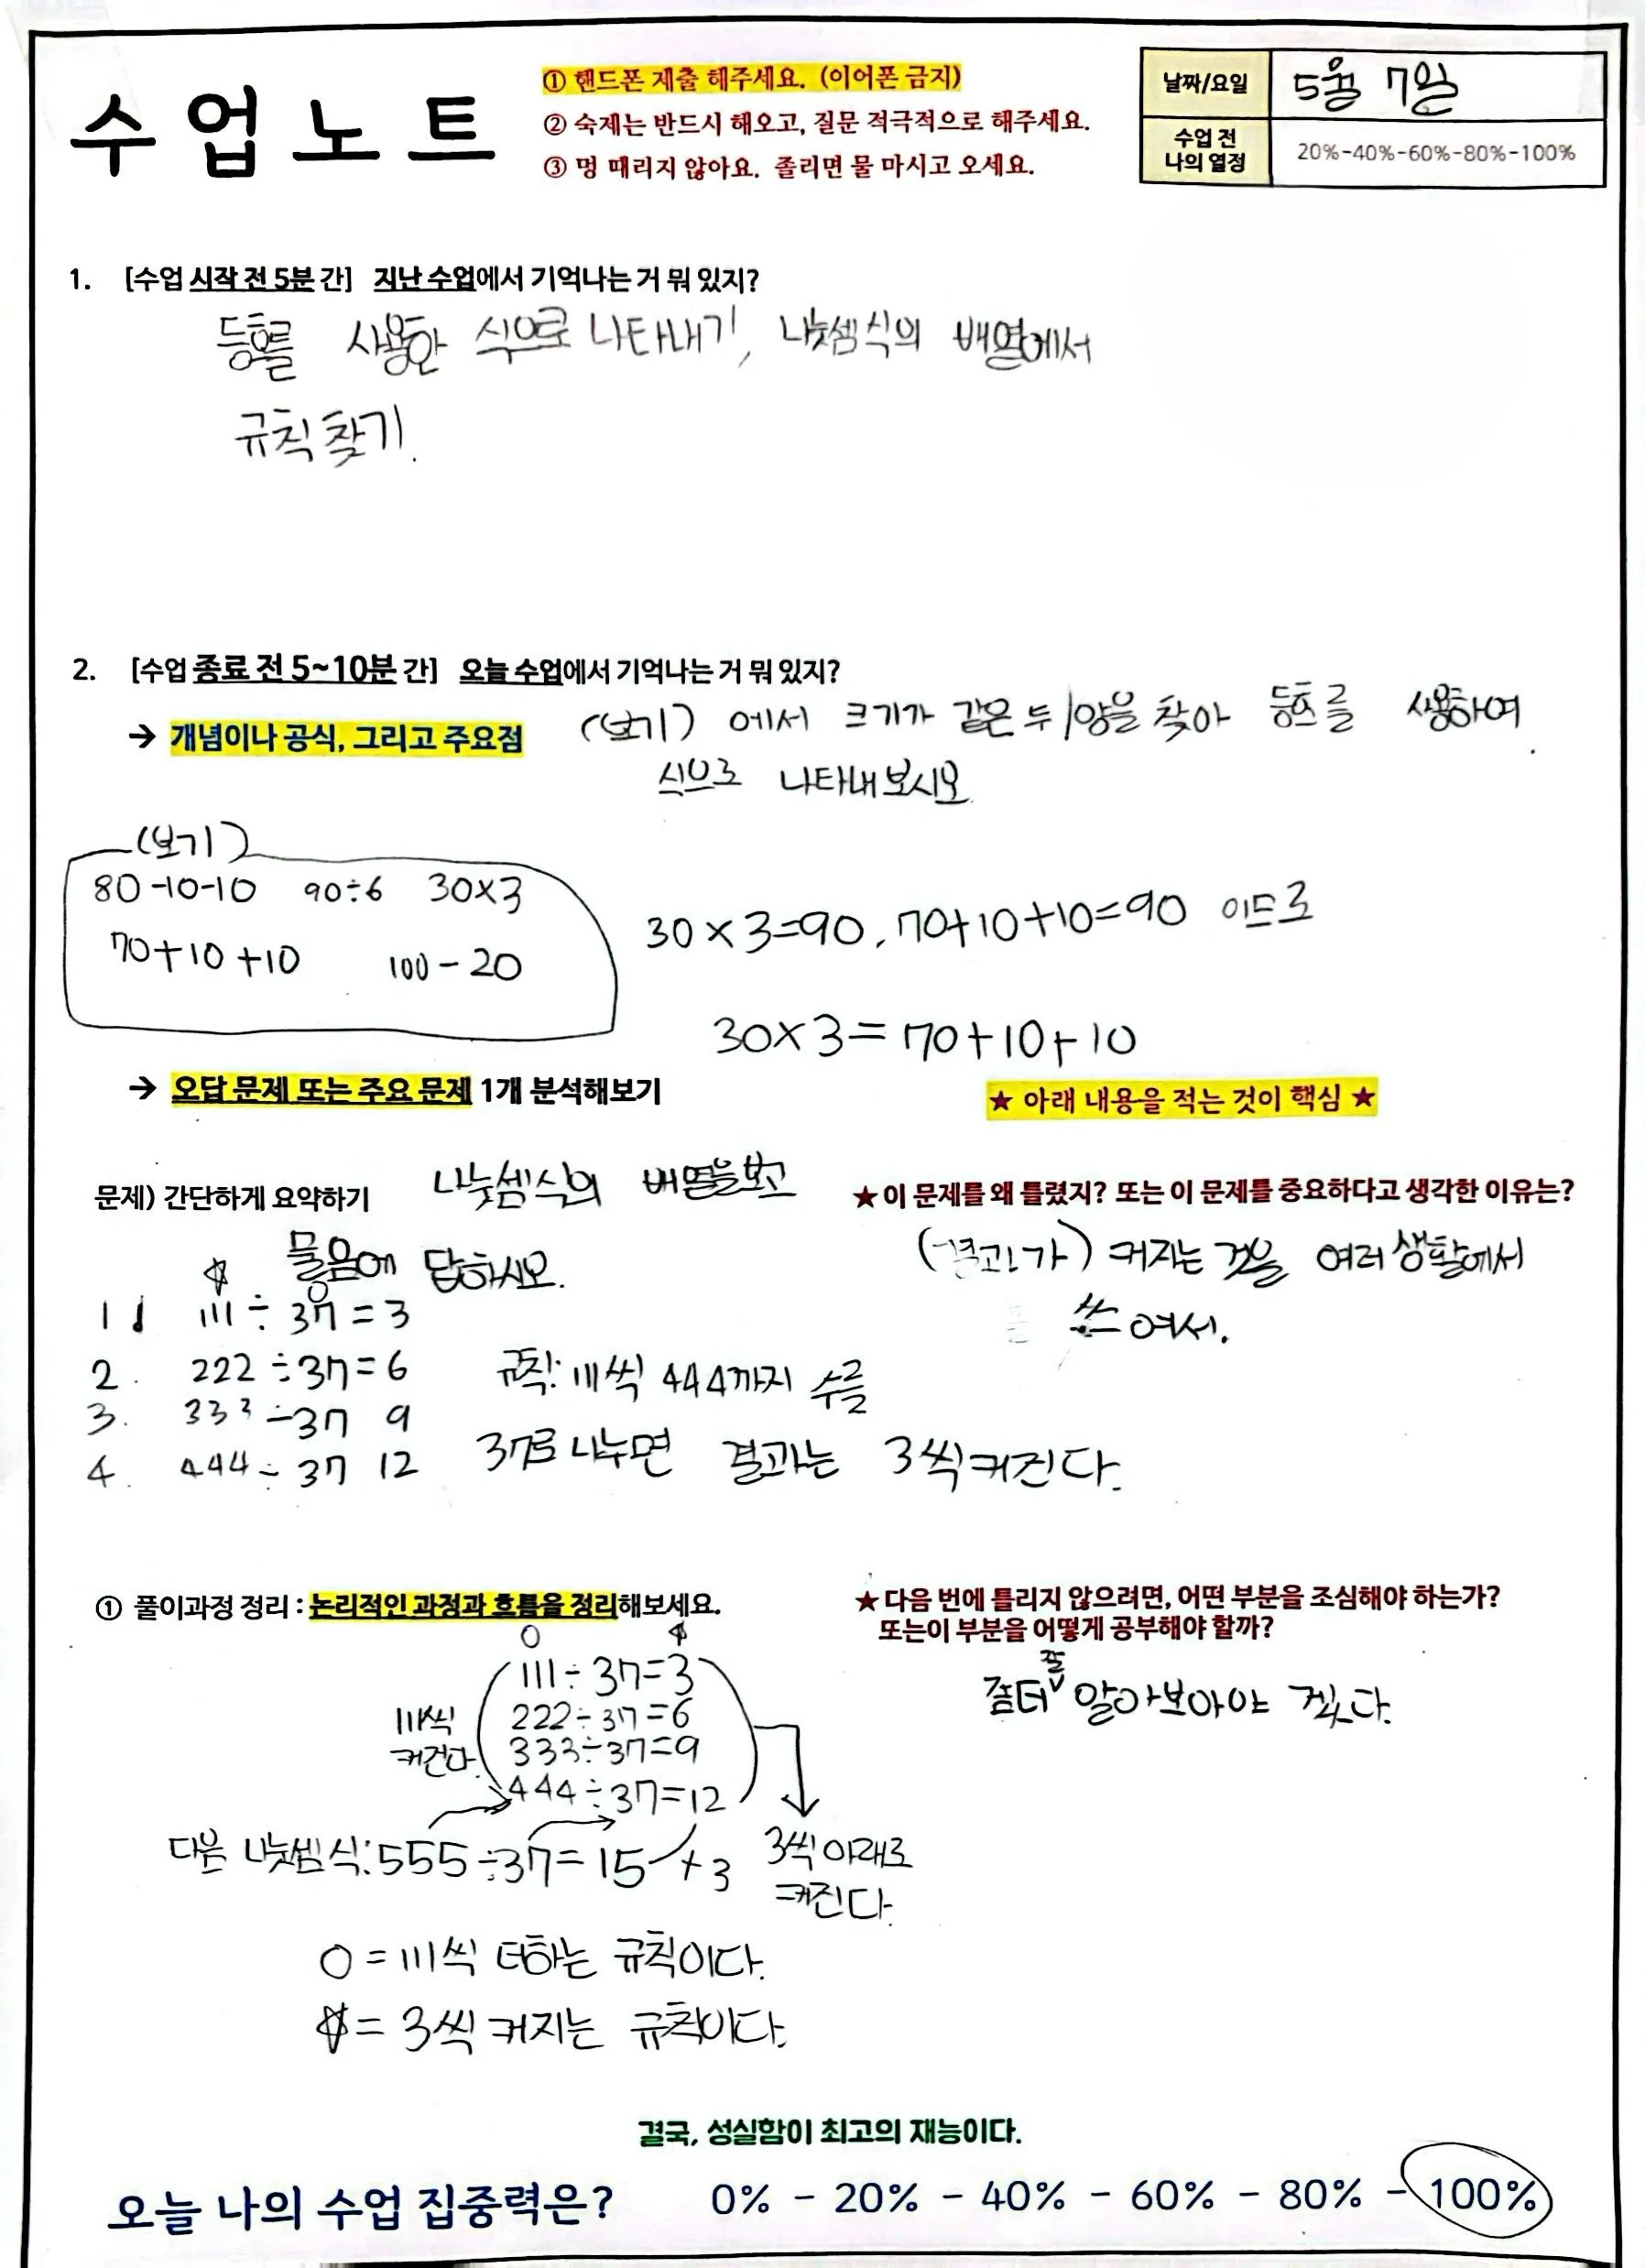 수업노트
① 핸드폰 제출 해주세요. (이어폰 금지)
② 숙제는 반드시 해오고, 질문 적극적으로 해주세요.
③ 멍 때리지 않아요. 졸리면 물 마시고 오세요.
날짜/요일 5월 7일
수업 전 나의 열정 20%-40%-60%-80%-100%
1. [수업 시작 전 5분 간] 지난 수업에서 기억나는 거 뭐 있지?
등호를 사용한 식으로 나타내기, 나눗셈식의 배열에서
규칙 찾기.
2. [수업 종료 전 5~10분 간] 오늘 수업에서 기억나는 거 뭐 있지?
→ 개념이나 공식, 그리고 주요점
(보기) 에서 크기가 같은 두 양을 찾아 등호를 사용하여
식으로 나타내보시오.
(보기)
80-10-10 90÷6 30×3
70+10+10 100-20
30×3=90, 70+10+10=90 이므로
30×3=70+10+10
→ 오답 문제 또는 주요 문제 1개 분석해보기
★ 아래 내용을 적는 것이 핵심 ★
문제) 간단하게 요약하기 나눗셈식의 배열을 보고
물음에 답하시오.
1 111÷37=3
2. 222÷37=6
3. 333÷37 9
4. 444÷37 12
규칙: 111씩 444까지 수를
37로 나누면 결과는 3씩 커진다.
★ 이 문제를 왜 틀렸지? 또는 이 문제를 중요하다고 생각한 이유는?
(결과가) 커지는 것을 여러 생활에서
쓰여서.
① 풀이과정 정리 : 논리적인 과정과 흐름을 정리해보세요.
○ ☆
111÷37=3
222÷37=6
333÷37=9
444÷37=12
111씩
커진다.
다음 나눗셈식:555÷37=15 +3
3씩 아래로
커진다.
○=111씩 더하는 규칙이다.
☆=3씩 커지는 규칙이다.
★ 다음 번에 틀리지 않으려면, 어떤 부분을 조심해야 하는가?
또는이 부분을 어떻게 공부해야 할까?
알아보아야 겠다.
결국, 성실함이 최고의 재능이다.
오늘 나의 수업 집중력은? 0% - 20% - 40% - 60% - 80% - 100%